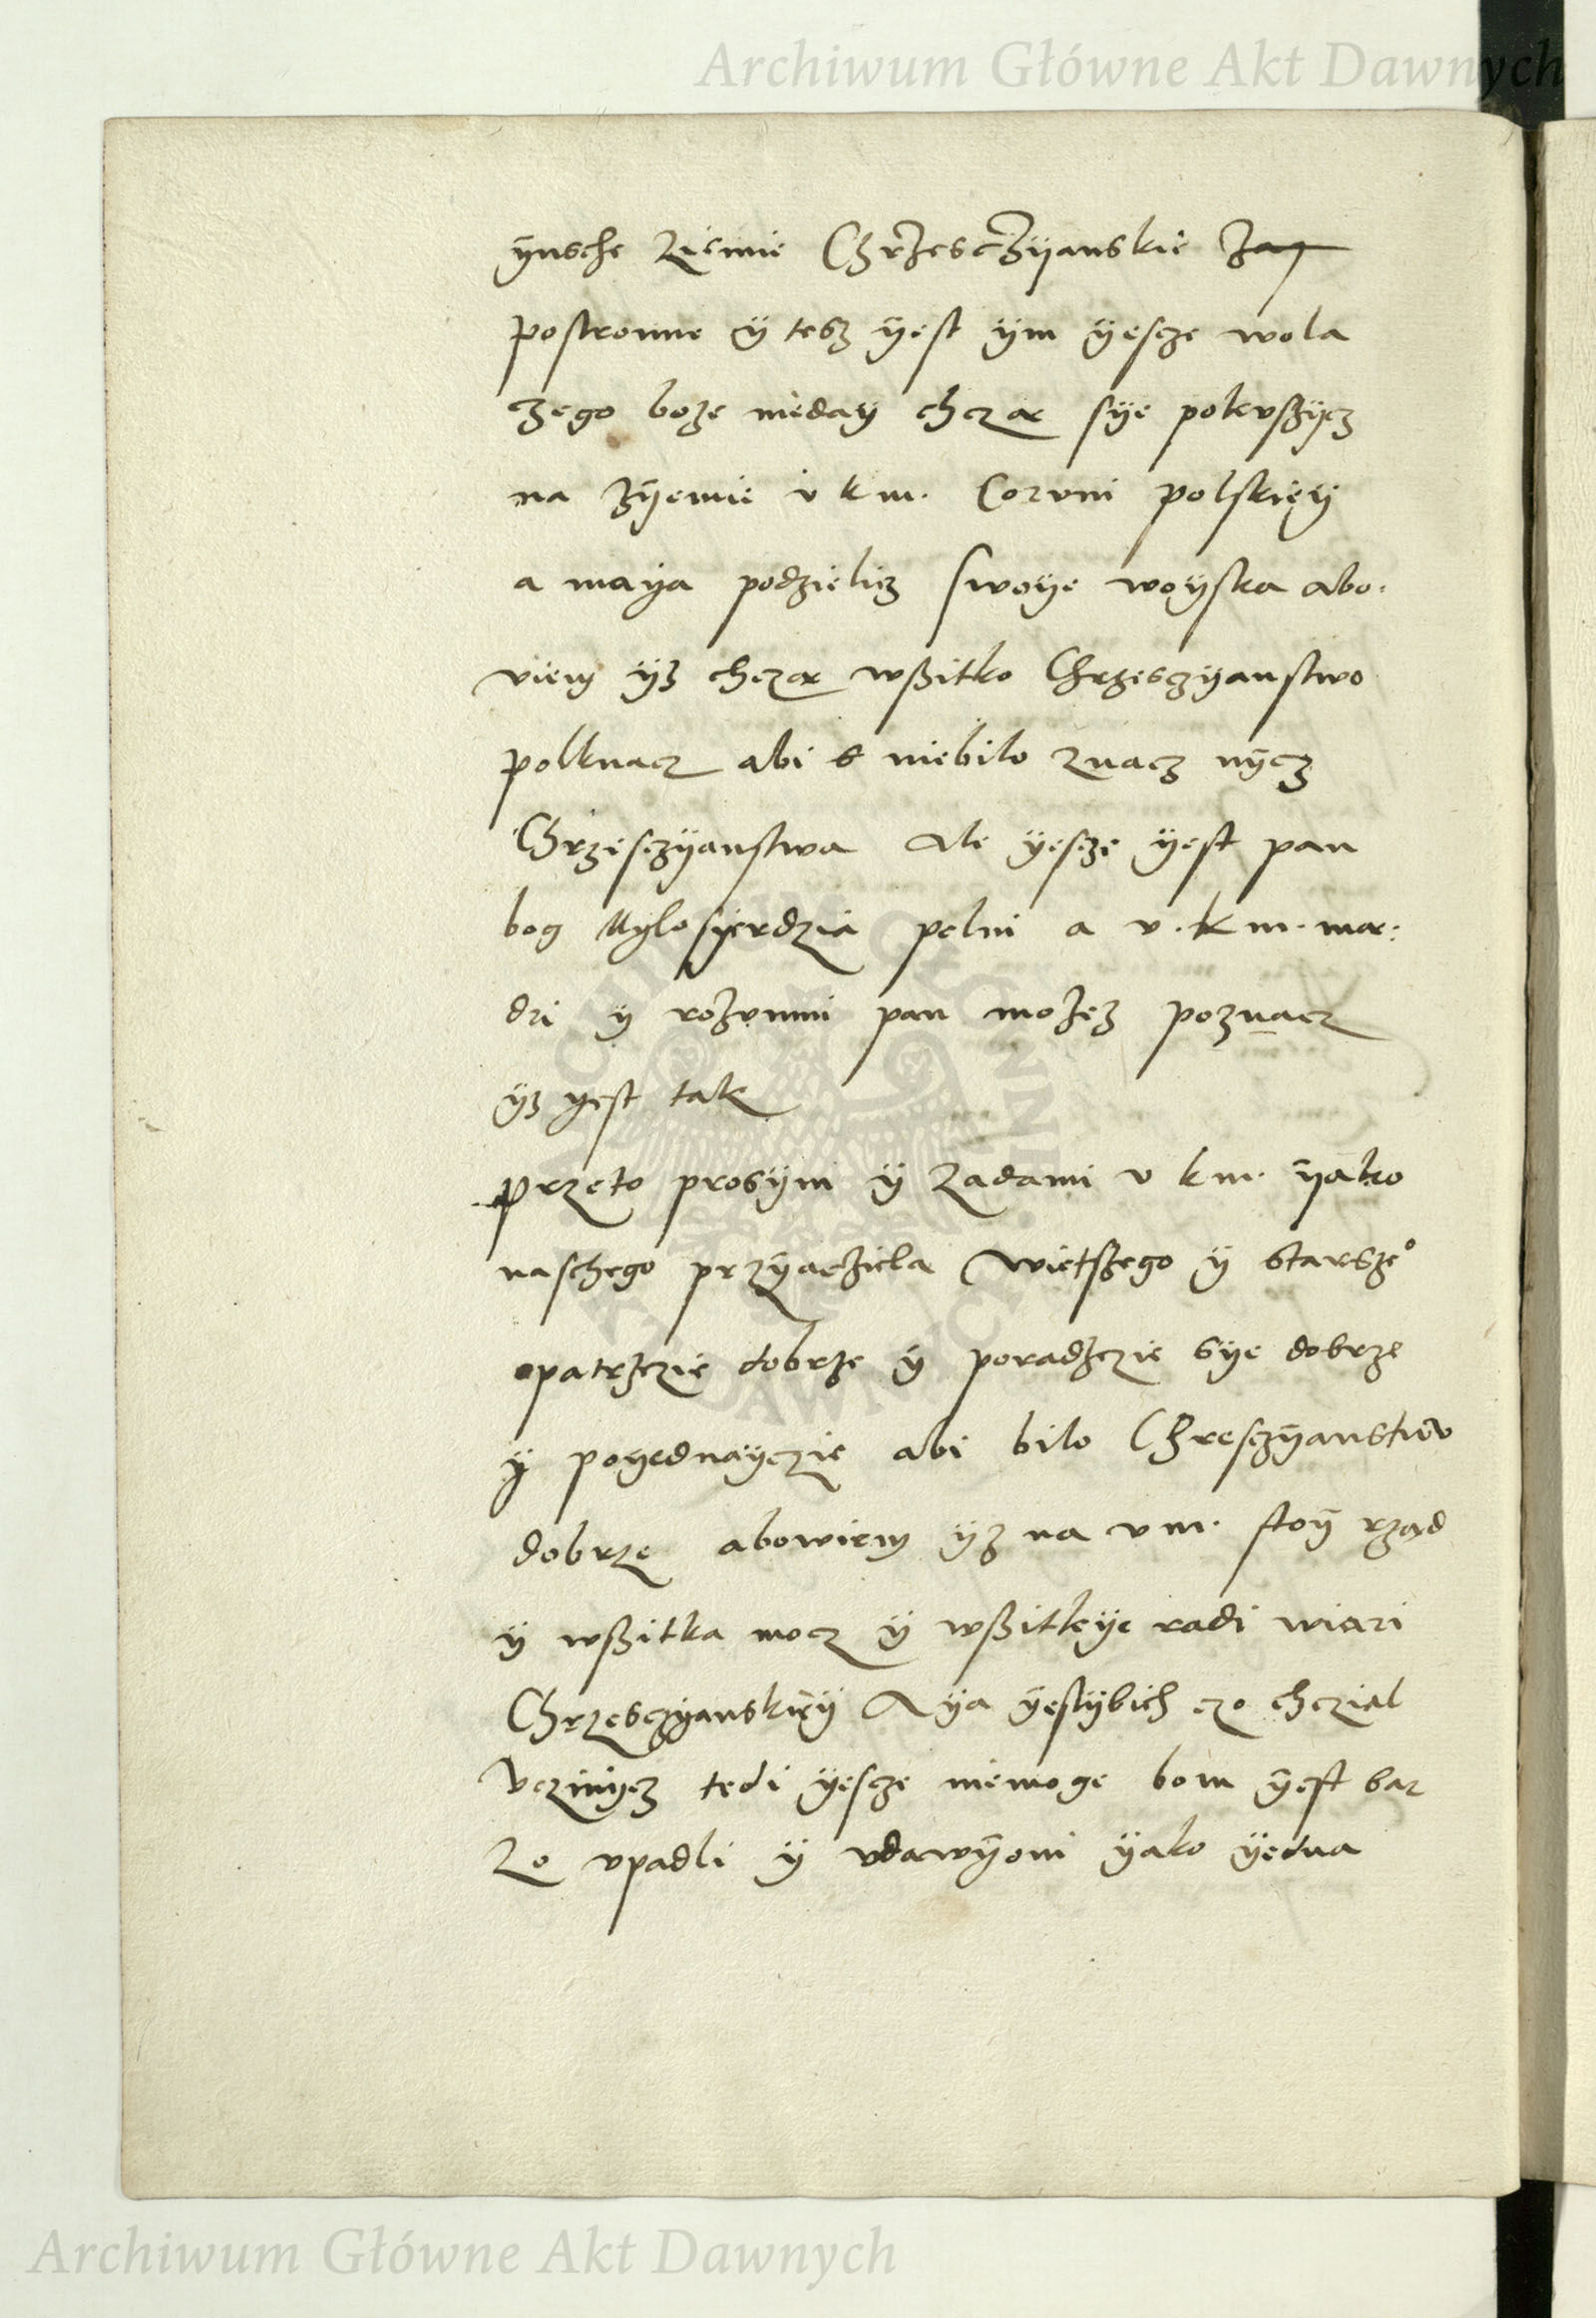 Archiwum Główne Akt Dawnych
ÿnsche Ziemie Chrzesczÿanskie
postronne ÿ tesz ÿest ÿm ÿescze wola
czego boze nieday chcza sÿe pokvszÿcz
na zÿemie v k m. Corvni polskieÿ
a maÿa podzielicz swoÿe woÿska abo.
viem ÿz chcza wszitko Chrzesczÿanstwo
polknacz abi s niebilo znacz nÿcz
Chrzesczÿanstwa Ale ÿescze ÿest pan
bog Mÿlosÿerdzia pelni a v. k m. ma:
dri ÿ rozvmni pan mozez poznacz
ÿz ÿest tak
przeto prosÿm ÿ zadami v k m. ÿako
naschego przÿacziela wietszego ÿ starsze°
opatrzczie dobrze ÿ poradzczie sÿe dobrze
ÿ poÿednaÿczie abi bilo Chresczÿanstwv
dobrze abowiem ÿz na v m. stoÿ rzad
ÿ wszitka mocz ÿ wszitkÿe radi wiari
Chrzesczÿanskieÿ A ÿa ÿeslÿbich czo chczial
Vczinÿcz tedi ÿescze niemoge bom ÿest bar
zo vpadli ÿ vdawÿoni ÿako ÿedna
Archiwum Główne Akt Dawnych